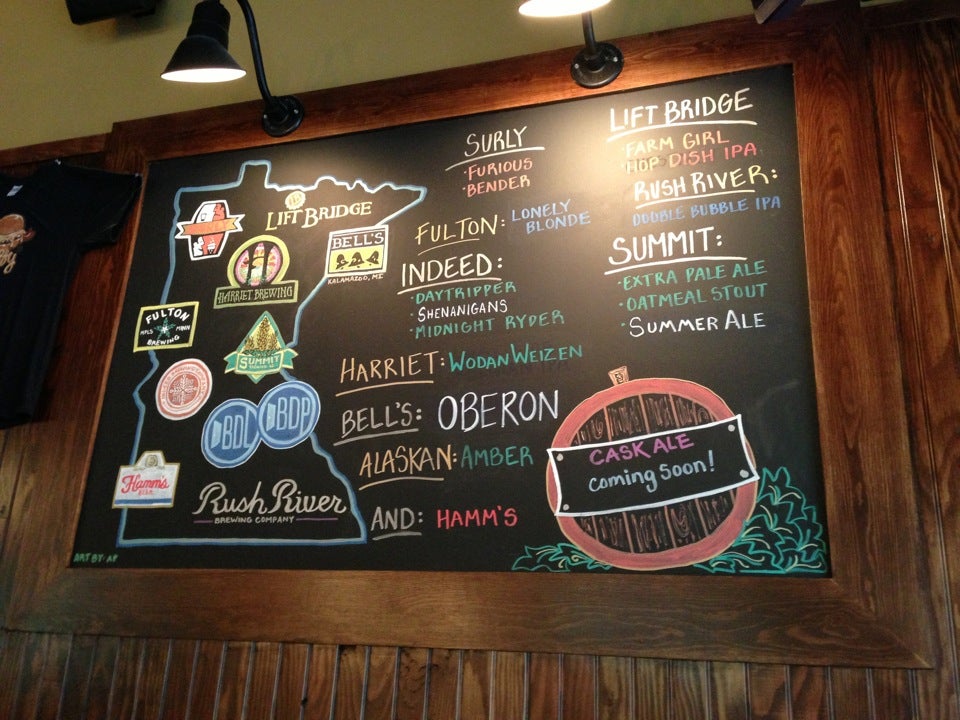 SURLY
· FURIOUS
· BENDER
LIFT BRIDGE
· FARM GIRL
· HOP DISH IPA
RUSH RIVER:
DOUBLE BUBBLE IPA
FULTON: LONELY
BLONDE
INDEED:
· DAYTRIPPER
· SHENANIGANS
· MIDNIGHT RYDER
SUMMIT:
· EXTRA PALE ALE
· OATMEAL STOUT
· SUMMER ALE
HARRIET: WODAN WEIZEN
BELL'S: OBERON
ALASKAN: AMBER
AND: HAMM'S
CASK ALE
coming soon!
LIFT BRIDGE
BELL'S
KALAMAZOO, MI
HARRIET BREWING
FULTON
MPLS MINN
BREWING
SUMMIT
BDL
BDP
Hamm's
BEER
Rush River
BREWING COMPANY
ART BY: AP